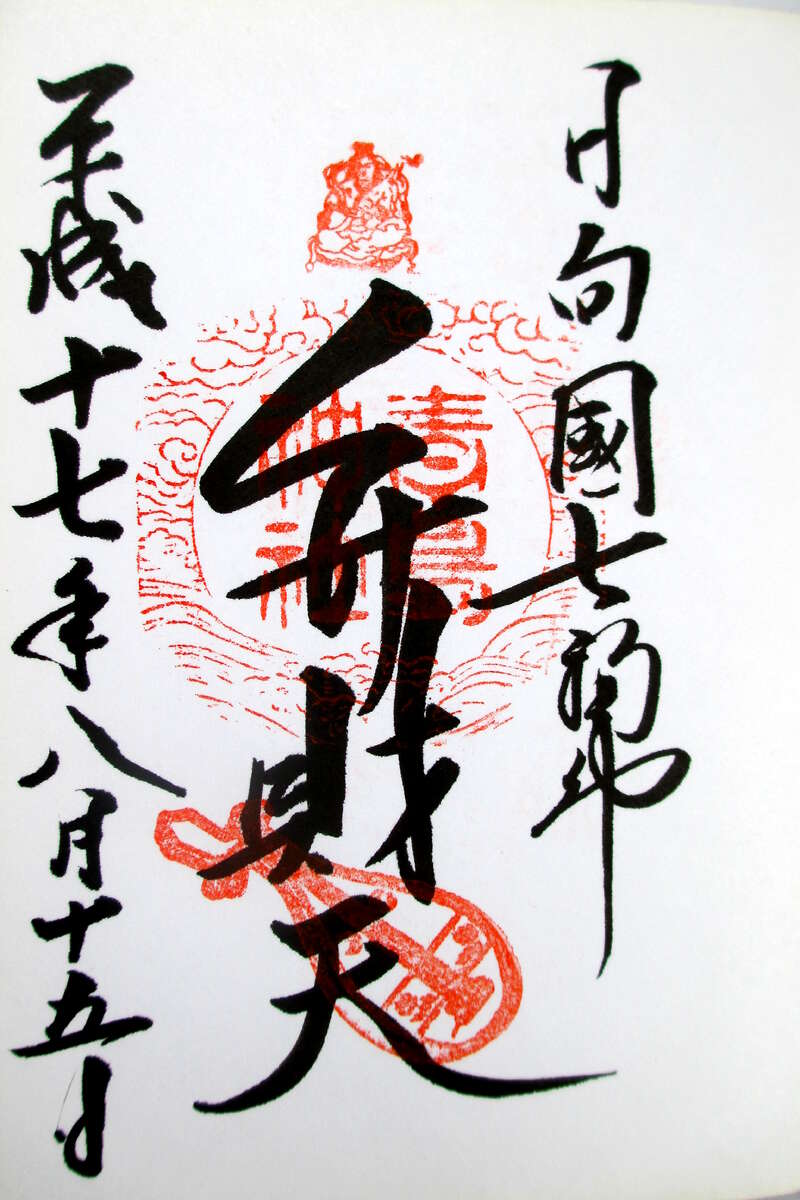 日向國七福神
弁財天
青島
神社
平成十七年八月十五日